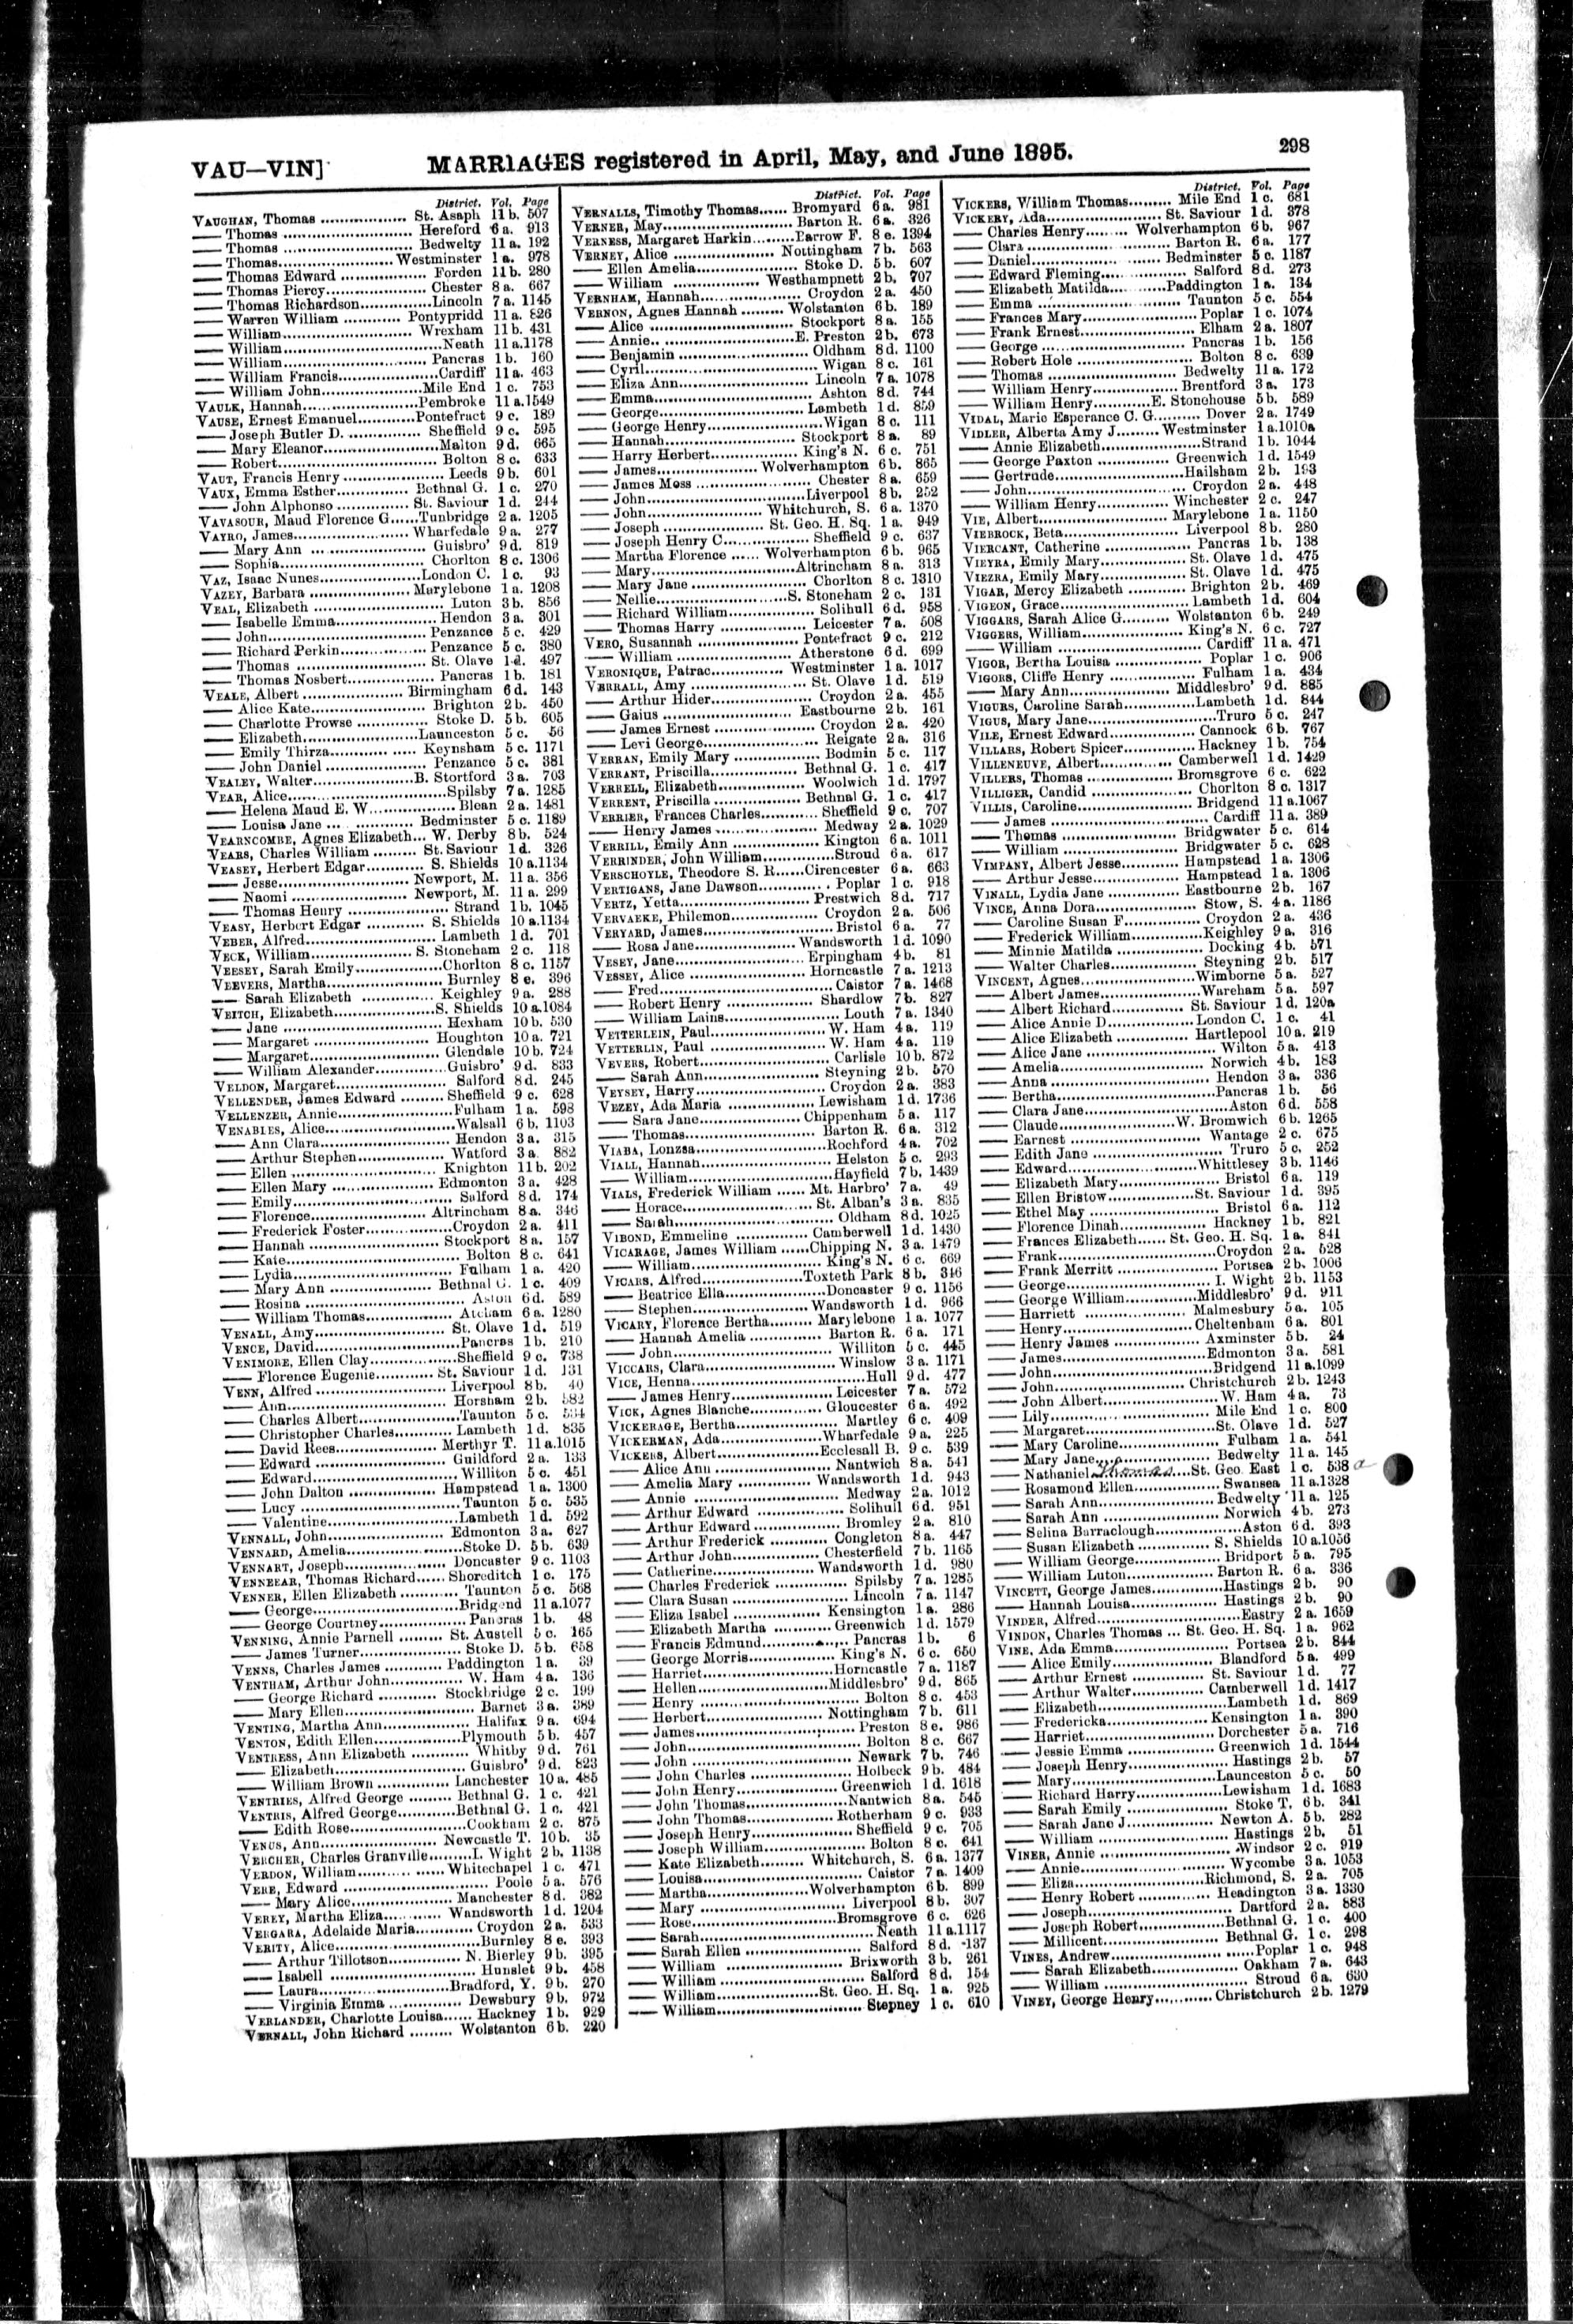 VAU—VIN]
MARRIAGES registered in April, May, and June 1895.
298
District. Vol. Page
VAUGHAN, Thomas .................. St. Asaph 11 b. 507
—— Thomas ........................... Hereford 6 a. 913
—— Thomas ........................... Bedwelty 11 a. 192
—— Thomas........................Westminster 1 a. 978
—— Thomas Edward .................. Forden 11 b. 280
—— Thomas Piercy..................... Chester 8 a. 667
—— Thomas Richardson...............Lincoln 7 a. 1145
—— Warren William ............ Pontypridd 11 a. 826
—— William........................... Wrexham 11 b. 431
—— William.................................Neath 11 a.1178
—— William.............................. Pancras 1 b. 160
—— William Francis.....................Cardiff 11 a. 463
—— William John.....................Mile End 1 c. 753
VAULK, Hannah........................Pembroke 11 a.1549
VAUSE, Ernest Emanuel............Pontefract 9 c. 189
—— Joseph Butler D. ............... Sheffield 9 c. 595
—— Mary Eleanor........................Malton 9 d. 665
—— Robert................................. Bolton 8 c. 633
VAUT, Francis Henry ..................... Leeds 9 b. 601
VAUX, Emma Esther............... Bethnal G. 1 c. 270
—— John Alphonso ............... St. Saviour 1 d. 244
VAVASOUR, Maud Florence G......Tunbridge 2 a. 1205
VAYRO, James........................ Wharfedale 9 a. 277
—— Mary Ann ........................ Guisbro' 9 d. 819
—— Sophia.............................. Chorlton 8 c. 1306
VAZ, Isaac Nunes.....................London C. 1 c. 93
VAZEY, Barbara ..................... Marylebone 1 a. 1208
VEAL, Elizabeth ........................... Luton 3 b. 856
—— Isabelle Emma..................... Hendon 3 a. 301
—— John................................. Penzance 5 c. 429
—— Richard Perkin.................. Penzance 5 c. 380
—— Thomas ........................... St. Olave 1 d. 497
—— Thomas Nosbert.................. Pancras 1 b. 181
VEALE, Albert ..................... Birmingham 6 d. 143
—— Alice Kate........................ Brighton 2 b. 450
—— Charlotte Prowse ............... Stoke D. 5 b. 605
—— Elizabeth........................Launceston 5 c. 56
—— Emily Thirza.................. Keynsham 5 c. 1171
—— John Daniel ..................... Penzance 5 c. 381
VEALEY, Walter.....................B. Stortford 3 a. 703
VEAR, Alice.................................Spilsby 7 a. 1285
—— Helena Maud E. W............... Blean 2 a. 1481
—— Louisa Jane .................. Bedminster 5 c. 1189
VEARNCOMBE, Agnes Elizabeth... W. Derby 8 b. 524
VEARS, Charles William ......... St. Saviour 1 d. 326
VEASEY, Herbert Edgar............ S. Shields 10 a.1134
—— Jesse........................... Newport, M. 11 a. 356
—— Naomi ........................ Newport, M. 11 a. 299
—— Thomas Henry ..................... Strand 1 b. 1045
VEASY, Herbert Edgar ............ S. Shields 10 a.1134
VEBER, Alfred........................... Lambeth 1 d. 701
VECK, William........................ S. Stoneham 2 c. 118
VEESEY, Sarah Emily..................Chorlton 8 c. 1157
VEEVERS, Martha........................ Burnley 8 e. 396
—— Sarah Elizabeth ............... Keighley 9 a. 288
VEITCH, Elizabeth.....................S. Shields 10 a.1084
—— Jane ................................. Hexham 10 b. 530
—— Margaret ........................ Houghton 10 a. 721
—— Margaret........................... Glendale 10 b. 724
—— William Alexander...............Guisbro' 9 d. 833
VELDON, Margaret........................ Salford 8 d. 245
VELLENDER, James Edward ......... Sheffield 9 c. 628
VELLENZER, Annie........................Fulham 1 a. 598
VENABLES, Alice...........................Walsall 6 b. 1103
—— Ann Clara........................... Hendon 3 a. 315
—— Arthur Stephen.................. Watford 3 a. 882
—— Ellen .............................. Knighton 11 b. 202
—— Ellen Mary ..................... Edmonton 3 a. 428
—— Emily................................. Salford 8 d. 174
—— Florence........................ Altrincham 8 a. 346
—— Frederick Foster..................Croydon 2 a. 411
—— Hannah ........................... Stockport 8 a. 157
—— Kate.................................... Bolton 8 c. 641
—— Lydia................................. Fulham 1 a. 420
—— Mary Ann ..................... Bethnal G. 1 c. 409
—— Rosina ................................. Aston 6 d. 589
—— William Thomas.................. Atcham 6 a. 1280
VENALL, Amy........................... St. Olave 1 d. 519
VENCE, David..............................Pancras 1 b. 210
VENIMORE, Ellen Clay..................Sheffield 9 c. 738
—— Florence Eugenie............ St. Saviour 1 d. 131
VENN, Alfred ........................... Liverpool 8 b. 40
—— Ann................................. Horsham 2 b. 582
—— Charles Albert.....................Taunton 5 c. 534
—— Christopher Charles............ Lambeth 1 d. 835
—— David Rees..................... Merthyr T. 11 a.1015
—— Edward ........................... Guildford 2 a. 133
—— Edward.............................. Williton 5 c. 451
—— John Dalton .................. Hampstead 1 a. 1300
—— Lucy ................................. Taunton 5 c. 535
—— Valentine...........................Lambeth 1 d. 592
VENNALL, John........................ Edmonton 3 a. 627
VENNARD, Amelia........................Stoke D. 5 b. 639
VENNART, Joseph..................... Doncaster 9 c. 1103
VENNBEAR, Thomas Richard...... Shoreditch 1 c. 175
VENNER, Ellen Elizabeth ............ Taunton 5 c. 568
—— George..............................Bridgend 11 a.1077
—— George Courtney.................. Pancras 1 b. 48
VENNING, Annie Parnell ......... St. Austell 5 c. 165
—— James Turner..................... Stoke D. 5 b. 658
VENNS, Charles James ............ Paddington 1 a. 39
VENTHAM, Arthur John............... W. Ham 4 a. 136
—— George Richard ............ Stockbridge 2 c. 199
—— Mary Ellen........................... Barnet 3 a. 389
VENTING, Martha Ann.................. Halifax 9 a. 694
VENTON, Edith Ellen..................Plymouth 5 b. 457
VENTRESS, Ann Elizabeth ............ Whitby 9 d. 761
—— Elizabeth........................... Guisbro' 9 d. 823
—— William Brown ............... Lanchester 10 a. 485
VENTRIES, Alfred George ......... Bethnal G. 1 c. 421
VENTRIS, Alfred George............Bethnal G. 1 c. 421
—— Edith Rose........................Cookham 2 c. 875
VENUS, Ann........................ Newcastle T. 10 b. 35
VERCHER, Charles Granville.........I. Wight 2 b. 1138
VERDON, William..................Whitechapel 1 c. 471
VERE, Edward .............................. Poole 5 a. 576
—— Mary Alice..................... Manchester 8 d. 382
VEREY, Martha Eliza............ Wandsworth 1 d. 1204
VERGARA, Adelaide Maria............ Croydon 2 a. 533
VERITY, Alice..............................Burnley 8 e. 393
—— Arthur Tillotson............... N. Bierley 9 b. 395
—— Isabell .............................. Hunslet 9 b. 458
—— Laura........................Bradford, Y. 9 b. 270
—— Virginia Emma ............... Dewsbury 9 b. 972
VERLANDER, Charlotte Louisa...... Hackney 1 b. 929
VERNALL, John Richard ......... Wolstanton 6 b. 220
District. Vol. Page
VERNALLS, Timothy Thomas...... Bromyard 6 a. 981
VERNER, May........................... Barton R. 6 a. 326
VERNESS, Margaret Harkin.........Barrow F. 8 e. 1394
VERNEY, Alice ..................... Nottingham 7 b. 563
—— Ellen Amelia..................... Stoke D. 5 b. 607
—— William .................. Westhampnett 2 b. 707
VERNHAM, Hannah..................... Croydon 2 a. 450
VERNON, Agnes Hannah ......... Wolstanton 6 b. 189
—— Alice .............................. Stockport 8 a. 155
—— Annie..............................E. Preston 2 b. 673
—— Benjamin ........................... Oldham 8 d. 1100
—— Cyril.................................... Wigan 8 c. 161
—— Eliza Ann........................... Lincoln 7 a. 1078
—— Emma................................. Ashton 8 d. 744
—— George.............................. Lambeth 1 d. 859
—— George Henry........................Wigan 8 c. 111
—— Hannah........................... Stockport 8 a. 89
—— Harry Herbert.................. King's N. 6 c. 751
—— James..................... Wolverhampton 6 b. 865
—— James Moss ........................ Chester 8 a. 659
—— John.................................Liverpool 8 b. 252
—— John........................ Whitchurch, S. 6 a. 1370
—— Joseph ..................... St. Geo. H. Sq. 1 a. 949
—— Joseph Henry C.................. Sheffield 9 c. 637
—— Martha Florence ...... Wolverhampton 6 b. 965
—— Mary..............................Altrincham 8 a. 313
—— Mary Jane ........................ Chorlton 8 c. 1310
—— Nellie...........................S. Stoneham 2 c. 131
—— Richard William.................. Solihull 6 d. 958
—— Thomas Harry .................. Leicester 7 a. 508
VERO, Susannah ..................... Pontefract 9 c. 212
—— William ........................ Atherstone 6 d. 699
VERONIQUE, Patrac............... Westminster 1 a. 1017
VERRALL, Amy ........................ St. Olave 1 d. 519
—— Arthur Hider..................... Croydon 2 a. 455
—— Gaius ........................... Eastbourne 2 b. 161
—— James Ernest ..................... Croydon 2 a. 420
—— Levi George........................ Reigate 2 a. 316
VERRAN, Emily Mary .................. Bodmin 5 c. 117
VERRANT, Priscilla.................. Bethnal G. 1 c. 417
VERRELL, Elizabeth.................. Woolwich 1 d. 1797
VERRENT, Priscilla .................. Bethnal G. 1 c. 417
VERRIER, Frances Charles............ Sheffield 9 c. 707
—— Henry James ..................... Medway 2 a. 1029
VERRILL, Emily Ann .................. Kington 6 a. 1011
VERRINDER, John William...............Stroud 6 a. 617
VERSCHOYLE, Theodore S. R......Cirencester 6 a. 663
VERTIGANS, Jane Dawson............... Poplar 1 c. 918
VERTZ, Yetta........................... Prestwich 8 d. 717
VERVAEKE, Philemon.................. Croydon 2 a. 506
VERYARD, James........................... Bristol 6 a. 77
—— Rosa Jane..................... Wandsworth 1 d. 1090
VESEY, Jane........................... Erpingham 4 b. 81
VESSEY, Alice ........................ Horncastle 7 a. 1213
—— Fred.................................... Caistor 7 a. 1468
—— Robert Henry .................. Shardlow 7 b. 827
—— William Lains........................ Louth 7 a. 1340
VETTERLEIN, Paul........................ W. Ham 4 a. 119
VETTERLIN, Paul ........................ W. Ham 4 a. 119
VEVERS, Robert........................... Carlisle 10 b. 872
—— Sarah Ann........................ Steyning 2 b. 570
VEYSEY, Harry........................... Croydon 2 a. 383
VEZEY, Ada Maria .................. Lewisham 1 d. 1736
—— Sara Jane..................... Chippenham 5 a. 117
—— Thomas........................... Barton R. 6 a. 312
VIABA, Lonzsa...........................Rochford 4 a. 702
VIALL, Hannah........................... Helston 5 c. 293
—— William..............................Hayfield 7 b. 1439
VIALS, Frederick William ...... Mt. Harbro' 7 a. 49
—— Horace........................ St. Alban's 3 a. 835
—— Sarah................................. Oldham 8 d. 1025
VIBOND, Emmeline ............... Camberwell 1 d. 1430
VICARAGE, James William ......Chipping N. 3 a. 1479
—— William........................... King's N. 6 c. 669
VICARS, Alfred.....................Toxteth Park 8 b. 346
—— Beatrice Ella.....................Doncaster 9 c. 1156
—— Stephen........................ Wandsworth 1 d. 966
VICARY, Florence Bertha......... Marylebone 1 a. 1077
—— Hannah Amelia ............... Barton R. 6 a. 171
—— John................................. Williton 5 c. 445
VICCARS, Clara........................... Winslow 3 a. 1171
VICE, Henna................................. Hull 9 d. 477
—— James Henry..................... Leicester 7 a. 572
VICK, Agnes Blanche............... Gloucester 6 a. 492
VICKERAGE, Bertha..................... Martley 6 c. 409
VICKERMAN, Ada.....................Wharfedale 9 a. 225
VICKERS, Albert.....................Ecclesall B. 9 c. 539
—— Alice Ann ........................ Nantwich 8 a. 541
—— Amelia Mary ............... Wandsworth 1 d. 943
—— Annie .............................. Medway 2 a. 1012
—— Arthur Edward .................. Solihull 6 d. 951
—— Arthur Edward .................. Bromley 2 a. 810
—— Arthur Frederick ............ Congleton 8 a. 447
—— Arthur John.................. Chesterfield 7 b. 1165
—— Catherine..................... Wandsworth 1 d. 980
—— Charles Frederick ............... Spilsby 7 a. 1285
—— Clara Susan ........................ Lincoln 7 a. 1147
—— Eliza Isabel .................. Kensington 1 a. 286
—— Elizabeth Martha ............ Greenwich 1 d. 1579
—— Francis Edmund.................. Pancras 1 b. 6
—— George Morris.................. King's N. 6 c. 650
—— Harriet...........................Horncastle 7 a. 1187
—— Hellen........................Middlesbro' 9 d. 865
—— Henry ................................. Bolton 8 c. 453
—— Herbert........................ Nottingham 7 b. 611
—— James................................. Preston 8 e. 986
—— John.................................... Bolton 8 c. 667
—— John ................................. Newark 7 b. 746
—— John Charles ..................... Holbeck 9 b. 484
—— John Henry..................... Greenwich 1 d. 1618
—— John Thomas.....................Nantwich 8 a. 545
—— John Thomas.................. Rotherham 9 c. 933
—— Joseph Henry..................... Sheffield 9 c. 705
—— Joseph William..................... Bolton 8 c. 641
—— Kate Elizabeth......... Whitchurch, S. 6 a. 1377
—— Louisa................................. Caistor 7 a. 1409
—— Martha.....................Wolverhampton 6 b. 899
—— Mary .............................. Liverpool 8 b. 307
—— Rose..............................Bromsgrove 6 c. 626
—— Sarah.................................... Neath 11 a.1117
—— Sarah Ellen ........................ Salford 8 d. 137
—— William ........................ Brixworth 3 b. 261
—— William .............................. Salford 8 d. 154
—— William.....................St. Geo. H. Sq. 1 a. 925
—— William.............................. Stepney 1 c. 610
District. Vol. Page
VICKERS, William Thomas......... Mile End 1 c. 681
VICKERY, Ada........................ St. Saviour 1 d. 378
—— Charles Henry......... Wolverhampton 6 b. 967
—— Clara .............................. Barton R. 6 a. 177
—— Daniel........................... Bedminster 5 c. 1187
—— Edward Fleming.................. Salford 8 d. 273
—— Elizabeth Matilda............Paddington 1 a. 134
—— Emma .............................. Taunton 5 c. 554
—— Frances Mary........................ Poplar 1 c. 1074
—— Frank Ernest........................ Elham 2 a. 1807
—— George .............................. Pancras 1 b. 156
—— Robert Hole ........................ Bolton 8 c. 639
—— Thomas ........................... Bedwelty 11 a. 172
—— William Henry.................. Brentford 3 a. 173
—— William Henry............E. Stonehouse 5 b. 589
VIDAL, Marie Esperance C. G......... Dover 2 a. 1749
VIDLER, Alberta Amy J......... Westminster 1 a.1010a
—— Annie Elizabeth.....................Strand 1 b. 1044
—— George Paxton ............... Greenwich 1 d. 1549
—— Gertrude...........................Hailsham 2 b. 193
—— John................................. Croydon 2 a. 448
—— William Henry............... Winchester 2 c. 247
VIE, Albert........................... Marylebone 1 a. 1150
VIEBROCK, Beta........................ Liverpool 8 b. 280
VIERCANT, Catherine .................. Pancras 1 b. 138
VIEYRA, Emily Mary.................. St. Olave 1 d. 475
VIEZRA, Emily Mary.................. St. Olave 1 d. 475
VIGAR, Mercy Elizabeth ............ Brighton 2 b. 469
VIGEON, Grace........................... Lambeth 1 d. 604
VIGGARS, Sarah Alice G......... Wolstanton 6 b. 249
VIGGERS, William..................... King's N. 6 c. 727
—— William .............................. Cardiff 11 a. 471
VIGOR, Bertha Louisa .................. Poplar 1 c. 906
VIGORS, Cliffe Henry .................. Fulham 1 a. 434
—— Mary Ann..................... Middlesbro' 9 d. 885
VIGURS, Caroline Sarah...............Lambeth 1 d. 844
VIGUS, Mary Jane........................... Truro 5 c. 247
VILE, Ernest Edward.................. Cannock 6 b. 767
VILLARS, Robert Spicer............... Hackney 1 b. 754
VILLENEUVE, Albert............... Camberwell 1 d. 1429
VILLERS, Thomas .................. Bromsgrove 6 c. 622
VILLIGER, Candid ..................... Chorlton 8 c. 1317
VILLIS, Caroline........................ Bridgend 11 a.1067
—— James ................................. Cardiff 11 a. 389
—— Thomas ........................ Bridgwater 5 c. 614
—— William ........................ Bridgwater 5 c. 628
VIMPANY, Albert Jesse............ Hampstead 1 a. 1306
—— Arthur Jesse.................. Hampstead 1 a. 1306
VINALL, Lydia Jane ............... Eastbourne 2 b. 167
VINCE, Anna Dora..................... Stow, S. 4 a. 1186
—— Caroline Susan F............... Croydon 2 a. 436
—— Frederick William...............Keighley 9 a. 316
—— Minnie Matilda .................. Docking 4 b. 571
—— Walter Charles.................. Steyning 2 b. 517
VINCENT, Agnes........................Wimborne 5 a. 527
—— Albert James.....................Wareham 5 a. 597
—— Albert Richard............... St. Saviour 1 d. 120a
—— Alice Annie D..................London C. 1 c. 41
—— Alice Elizabeth ............... Hartlepool 10 a. 219
—— Alice Jane ........................... Wilton 5 a. 413
—— Amelia.............................. Norwich 4 b. 183
—— Anna ................................. Hendon 3 a. 336
—— Bertha.................................Pancras 1 b. 56
—— Clara Jane..............................Aston 6 d. 558
—— Claude........................W. Bromwich 6 b. 1265
—— Earnest .............................. Wantage 2 c. 675
—— Edith Jane ........................... Truro 5 c. 252
—— Edward...........................Whittlesey 3 b. 1146
—— Elizabeth Mary..................... Bristol 6 a. 119
—— Ellen Bristow..................St. Saviour 1 d. 395
—— Ethel May ........................... Bristol 6 a. 112
—— Florence Dinah.................. Hackney 1 b. 821
—— Frances Elizabeth...... St. Geo. H. Sq. 1 a. 841
—— Frank.................................Croydon 2 a. 528
—— Frank Merritt ..................... Portsea 2 b. 1006
—— George.............................. I. Wight 2 b. 1153
—— George William...............Middlesbro' 9 d. 911
—— Harriett ........................ Malmesbury 5 a. 105
—— Henry...........................Cheltenham 6 a. 801
—— Henry James .................. Axminster 5 b. 24
—— James.............................. Edmonton 3 a. 581
—— John.................................Bridgend 11 a.1099
—— John........................... Christchurch 2 b. 1243
—— John Albert........................ W. Ham 4 a. 73
—— Lily................................. Mile End 1 c. 800
—— Margaret...........................St. Olave 1 d. 527
—— Mary Caroline..................... Fulham 1 a. 541
—— Mary Jane........................ Bedwelty 11 a. 145
—— Nathaniel Thomas...St. Geo. East 1 c. 538 a
—— Rosamond Ellen.................. Swansea 11 a.1328
—— Sarah Ann........................ Bedwelty 11 a. 125
—— Sarah Ann ........................ Norwich 4 b. 273
—— Selina Barraclough..................Aston 6 d. 393
—— Susan Elizabeth ............... S. Shields 10 a.1056
—— William George.................. Bridport 5 a. 795
—— William Luton.................. Barton R. 6 a. 336
VINCETT, George James...............Hastings 2 b. 90
—— Hannah Louisa.................. Hastings 2 b. 90
VINDER, Alfred..............................Eastry 2 a. 1659
VINDON, Charles Thomas ... St. Geo. H. Sq. 1 a. 962
VINE, Ada Emma........................ Portsea 2 b. 844
—— Alice Emily..................... Blandford 5 a. 499
—— Arthur Ernest ............... St. Saviour 1 d. 77
—— Arthur Walter............... Camberwell 1 d. 1417
—— Elizabeth...........................Lambeth 1 d. 869
—— Fredericka..................... Kensington 1 a. 390
—— Harriet........................... Dorchester 5 a. 716
—— Jessie Emma .................. Greenwich 1 d. 1544
—— Joseph Henry..................... Hastings 2 b. 57
—— Mary..............................Launceston 5 c. 50
—— Richard Harry..................Lewisham 1 d. 1683
—— Sarah Emily ..................... Stoke T. 6 b. 341
—— Sarah Jane J.................. Newton A. 5 b. 282
—— William ........................... Hastings 2 b. 51
VINER, Annie .............................. Windsor 2 c. 919
—— Annie.............................. Wycombe 3 a. 1053
—— Eliza...........................Richmond, S. 2 a. 705
—— Henry Robert ............... Headington 3 a. 1330
—— Joseph.............................. Dartford 2 a. 883
—— Joseph Robert.................. Bethnal G. 1 c. 400
—— Millicent........................ Bethnal G. 1 c. 298
VINES, Andrew..............................Poplar 1 c. 948
—— Sarah Elizabeth.................. Oakham 7 a. 643
—— William .............................. Stroud 6 a. 630
VINEY, George Henry............ Christchurch 2 b. 1279